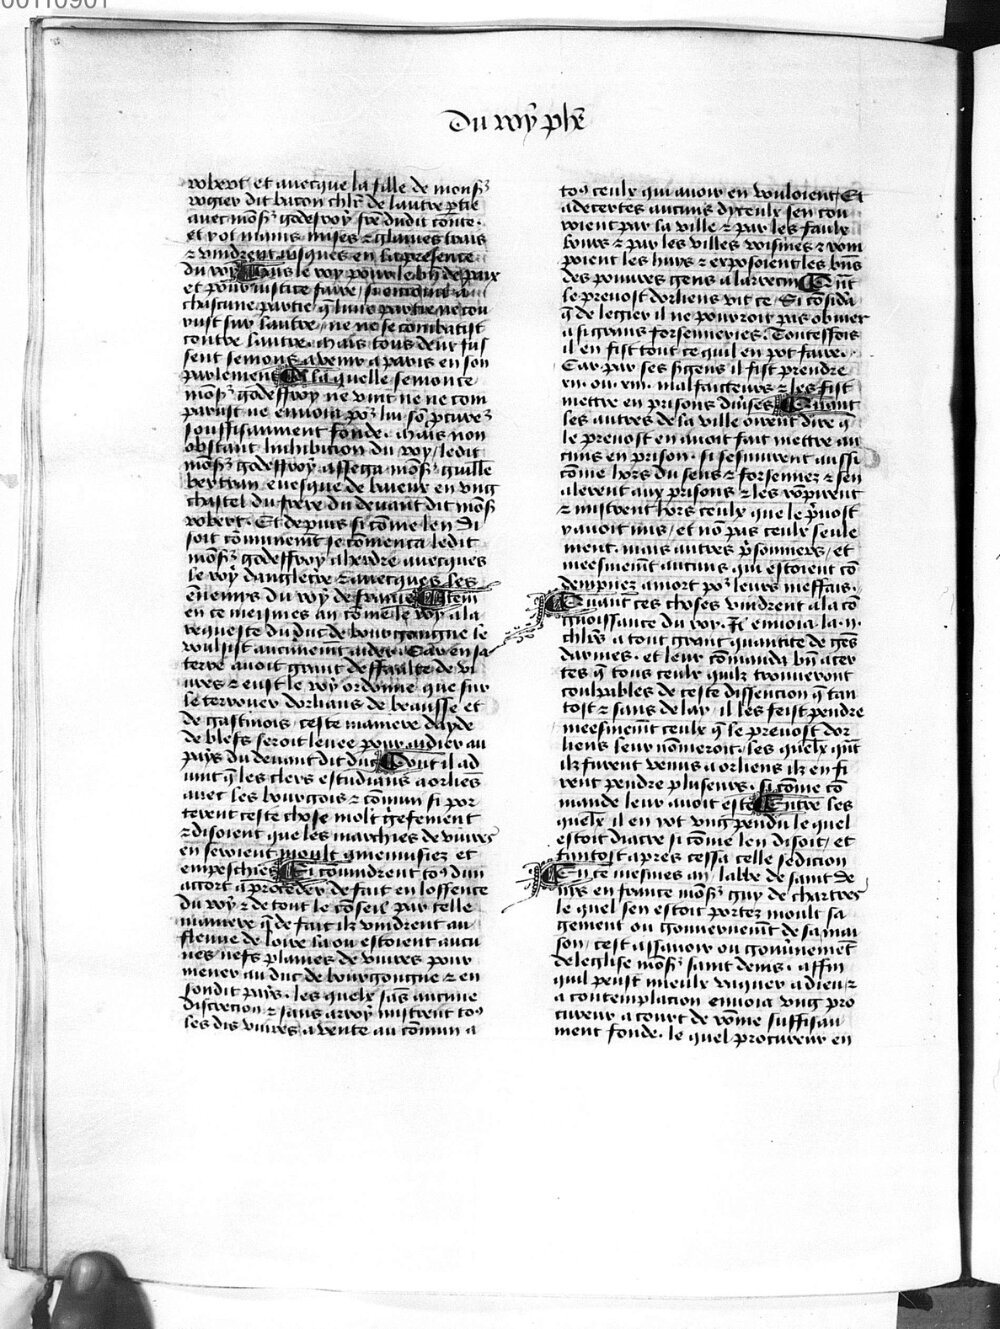 00110901
Du roy phē
robert et auecque la fille de monsʳ
rogier dit bacon chlr̄ de lautre ptie
auec mōsʳ godefroy fre dudit conte.
et y ot mains mises ⁊ glaiues trais
⁊ vindrent iusques en la presence
du roy Mais le roy pour le bn̄ de paix
et pour iustice faire, sentremist a
chascune partie q̄ lune partie ne cou
rust sur lautre, ne ne se combatist
contre lautre. Mais tous deux fus
sent semons a venir a paris en son
parlement A la quelle semonce
mōsʳ godeffroy ne vint ne ne com
parust ne enuoia poʳ lui sō pcureʳ
souffisanment fonde. Mais non
obstant linhibition du roy ledit
mōsʳ godeffroy assega mōsʳ guille
bertran euesque de baieux en vng
chastel du frere du deuant dit mōsʳ
robert. Et depuis si cōme len di
soit cōmunemēt se cōmenca ledit
mōsʳ godeffroy aherdre auecques
le roy dangletre ⁊ auecques les
enemis du roy de france Item
en ce meismes an cōme le roy a la
requeste du duc de bourgongne le
voulsist aucunemēt aider. Car en sa
terre auoit grant deffaulte de vi
ures ⁊ eust le roy ordonne que sur
le terrouer dorlians de beausse et
de gastinois ceste maniere dayde
de blefs seroit leuee pour aidier au
pays du deuant dit duc Dont il ad
uint q̄ les clers estudians a orliēs
auec les bourgois ⁊ cōmun si por
terent ceste chose molt ḡefement
⁊ disoient que les marchies de viures
en seroient moult amenuisiez et
empeschies Si couindrent toꝰ dun
accort a proceder de fait en loffence
du roy ⁊ de tout le cōseil par telle
maniere q̄ de fait ilz vindrent au
fleuue de loire la ou estoient aucu
nes nefs plaines de viures pour
mener au duc de bourgongne ⁊ en
sondit pays. les quelx sās aucune
discrecion ⁊ sans arroy mistrent toꝰ
les dis viures a vente au cōmun a
toꝰ ceulx qui auoir en vouloient Et
adecertes aucuns dyceulx sen cou
roient par la ville ⁊ par les faulx
bours ⁊ par les villes voisines ⁊ rom
poient les huys ⁊ exposoient les bn̄s
des poures gens a larrecin Et
le preuost dorliens vit ce. Si cōsidā
q̄ de legier il ne pourroit pas obuier
a si grans forsenneries. Toutesfois
il en fist tout ce quil en pot faire.
Car par ses sʳgens il fist prendre
vii. ou viii. malfaicteurs ⁊ les fist
mettre en prisons diuses Quant
les autres de la ville oirent dire q̄
le preuost en auoit fait mettre au
cuns en prison. si sesmurent aussi
cōme hors du sens ⁊ forsennez ⁊ sen
alerent aux prisons ⁊ les rōpirent
⁊ mistrent hors ceulx que le p̄uost
y auoit mis, et nō pas ceulx seule
ment. mais autres p̄sonniers, et
meesmemēt aucuns qui estoient cō
dempnez a mort poʳ leurs meffais.
Quant ces choses vindrent a la cō
gnoissance du roy. Il enuoia la .ii.
chlr̄s a tout grant quantite de gēs
darmes. et leur cōmanda bn̄ acer
tes q̄ tous ceulx quilz trouueront
coulpables de ceste dissention q̄ tan
tost ⁊ sans delay il les feist pendre
meesmemēt ceulx q̄ le preuost dor
liens leur nōmeroit. les quelx qn̄t
ilz furent venus a orliens ilz en fi
rent pendre pluseurs. si cōme cō
mande leur auoit este Entre les
quelx il en yot vng pendu le quel
estoit diacre si cōme len disoit, et
tantost apres cessa celle sedicion
En ce mesmes an labbe de saint de
nis en france mōsʳ guy de chartres
le quel sen estoit portez moult sa
gement ou gouuernemēt de sa mai
son, cest assauoir ou gouūnement
de leglise mōsʳ saint denis. affin
quil peust mieulx vaquer a dieu ⁊
a contemplacion enuoia vng pro
cureur a court de rōme suffisan
ment fonde. le quel procureur en